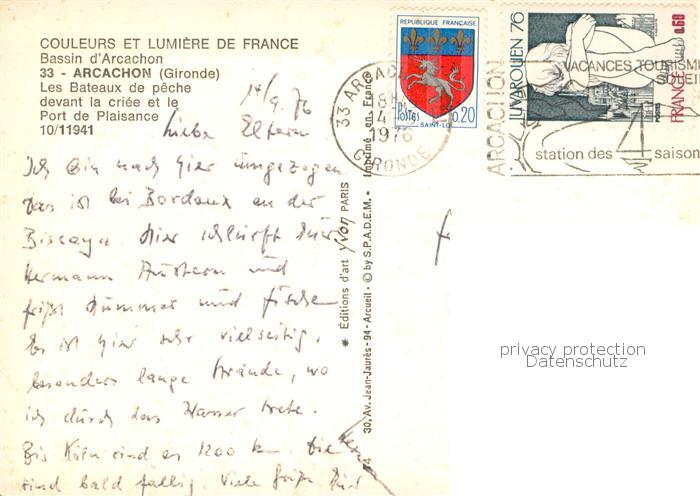 COULEURS ET LUMIÈRE DE FRANCE
Bassin d'Arcachon
33 - ARCACHON (Gironde)
Les Bateaux de pêche
devant la criée et le
Port de Plaisance
10/11941
14/9. 76
Liebe Eltern
Ich bin nach hier umgezogen
das ist bei Bordeaux an der
Biscaya. Hier schlürft
Hermann Austern und
frißt Hummer und Fische
Es ist hier sehr vielseitig,
besonders lange Strände, wo
ich durch das Wasser trete.
Bis Köln sind es 1200 km. Die
sind bald fällig. Viele Grüße
* Éditions d'art yvon PARIS
30, Av. Jean-Jaurès - 94 - Arcueil - © by S.P.A.D.E.M. - Imprimé en France
REPUBLIQUE FRANÇAISE
POSTES
0,20
SAINT-LO
33 ARCACHON
1976
GIRONDE
JUVAROUEN 76
FRANCE 0,60
POSTES
ARCACHON
VACANCES TOURISME
SOLEIL
station des 4 saisons
privacy protection
Datenschutz